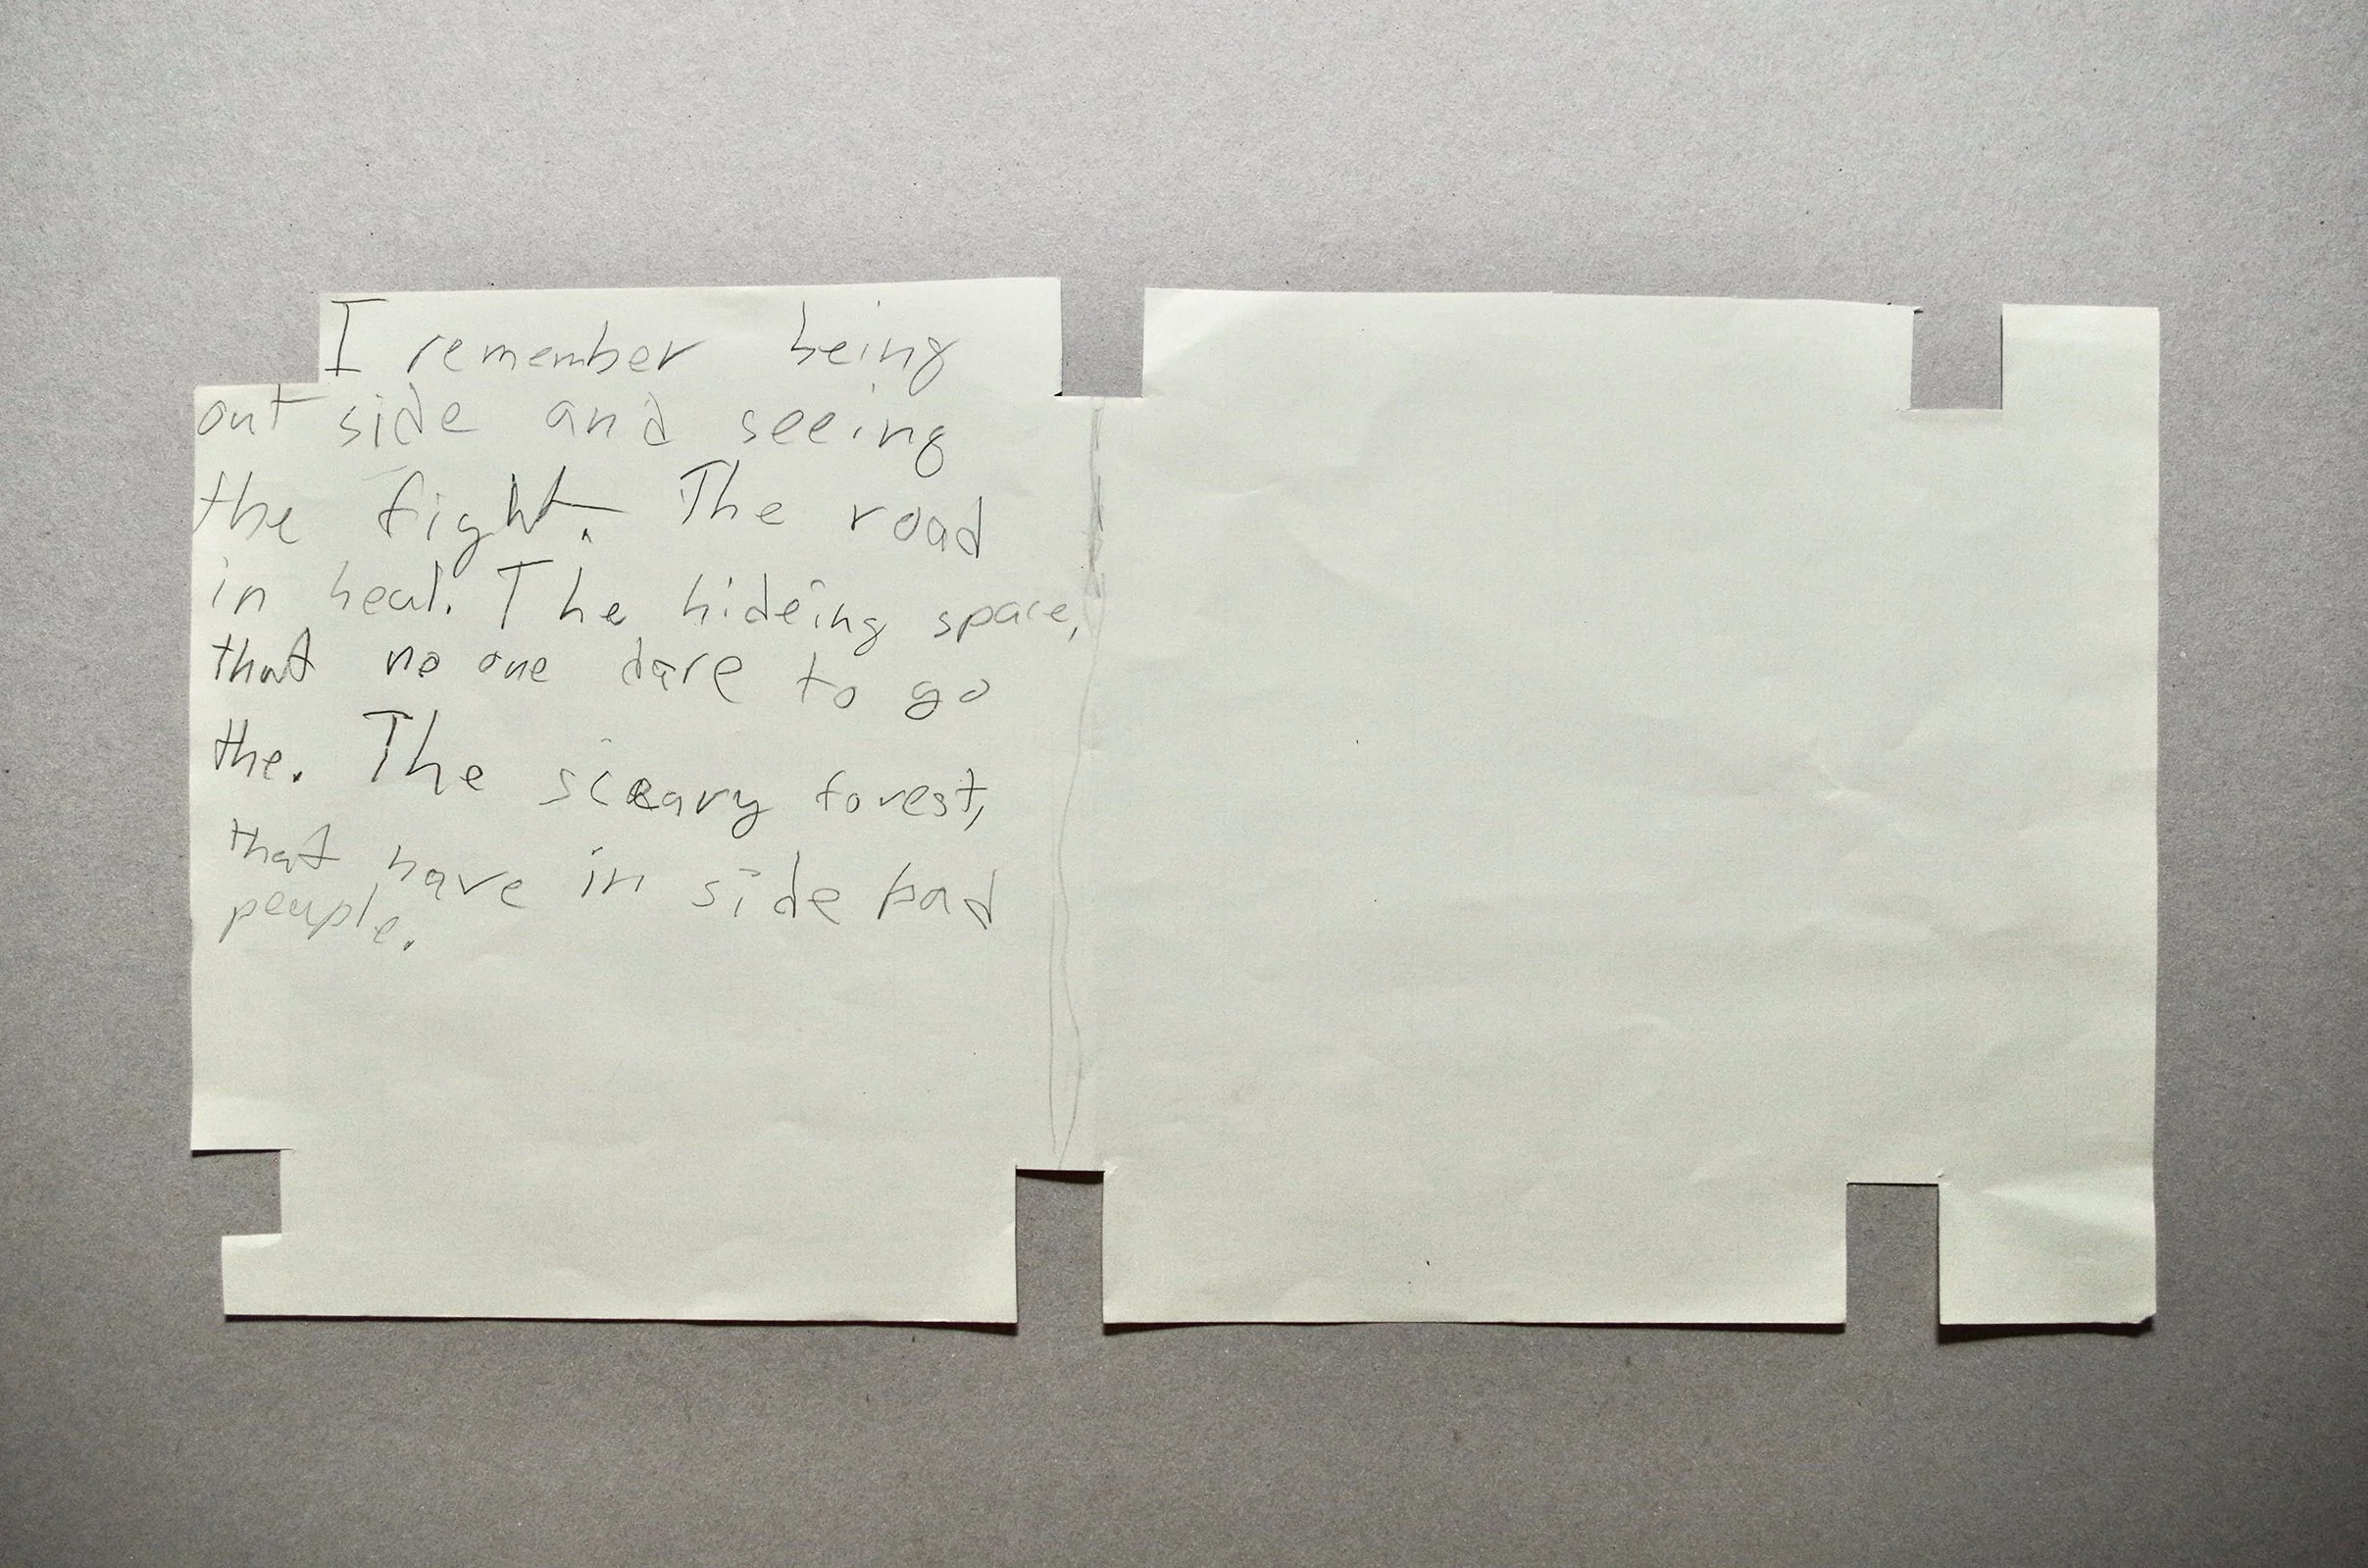 I remember being
out side and seeing
the fight. The road
in heal. The hideing space,
that no one dare to go
the. The scary forest,
that have in side bad
people.